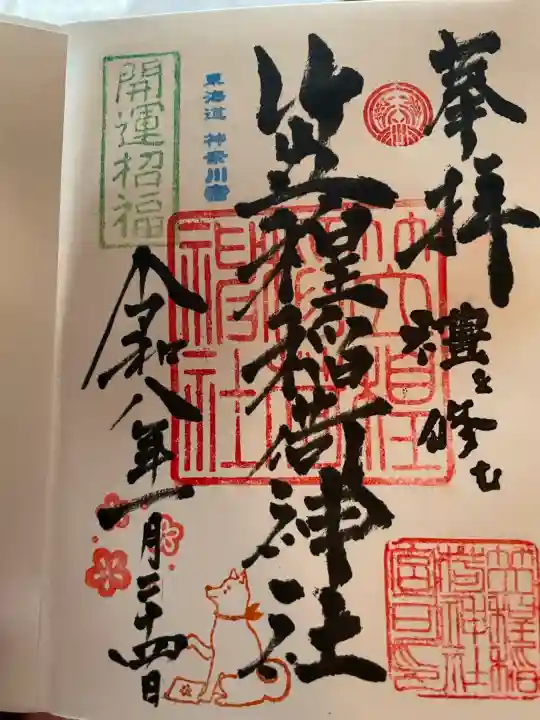 奉拝
禮を修む
笠䅣稲荷神社
東海道 神奈川宿
開運招福
令和八年一月二十四日
笠䅣稲荷神社宮司之印